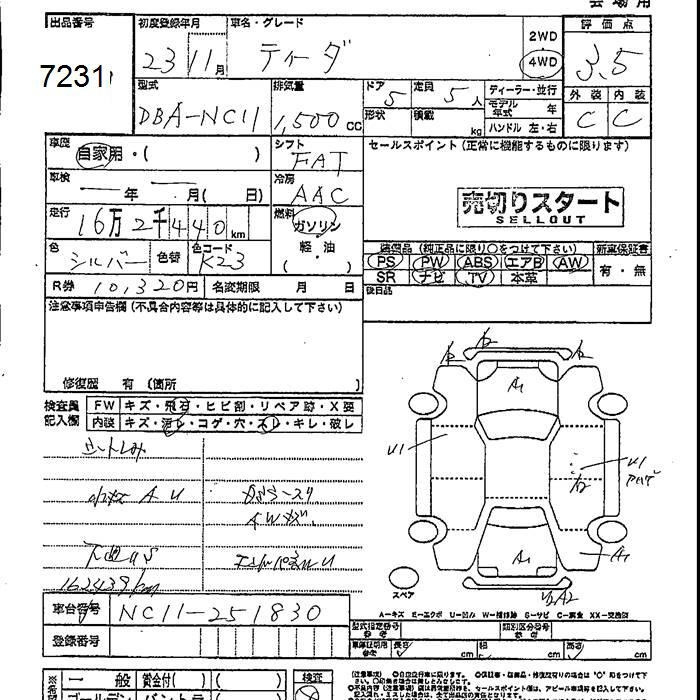 会場用
出品番号
7231
初度登録年月
23 11月
車名・グレード
ティーダ
2WD
4WD
評価点
3.5
外装 内装
C C
型式
DBA-NC11
排気量
1,500cc
ドア
5
定員
5人
形状
積載
kg
ディーラー・並行
モデル年式 年
ハンドル 左・右
車歴
自家用・( )
シフト
FAT
セールスポイント(正常に機能するものに限ります)
車検
年 月( 日)
冷房
AAC
売切りスタート
SELLOUT
走行
16万2千440km
燃料
ガソリン
軽・油
( )
色
シルバー
色替
色コード
K23
装備品(純正品に限り○をつけて下さい)
新車保証書
PS PW ABS エアB AW
SR ナビ TV 本革
有・無
後日品
R券 10,320円
名変期限 月 日
注意事項申告欄(不具合内容等は具体的に記入して下さい)
修復歴 有〔箇所 〕
検査員記入欄
FW キズ・飛石・ヒビ割・リペア跡・X要
内装 キズ・汚レ・コゲ・穴・スレ・キレ・破レ
A U
下廻りS
エンドパネルU
162439km
A1
U1
U1
A2
A1
A1
A2
スペア
A-キズ E-エクボ U-凹ミ W-補修跡 S-サビ C-腐食 XX-交換済
車台番号
NC11-251830
登録番号
型式指定番号
類別区分番号
長さ cm
幅 cm
高さ cm
一般
賞金付( )
( )
検査